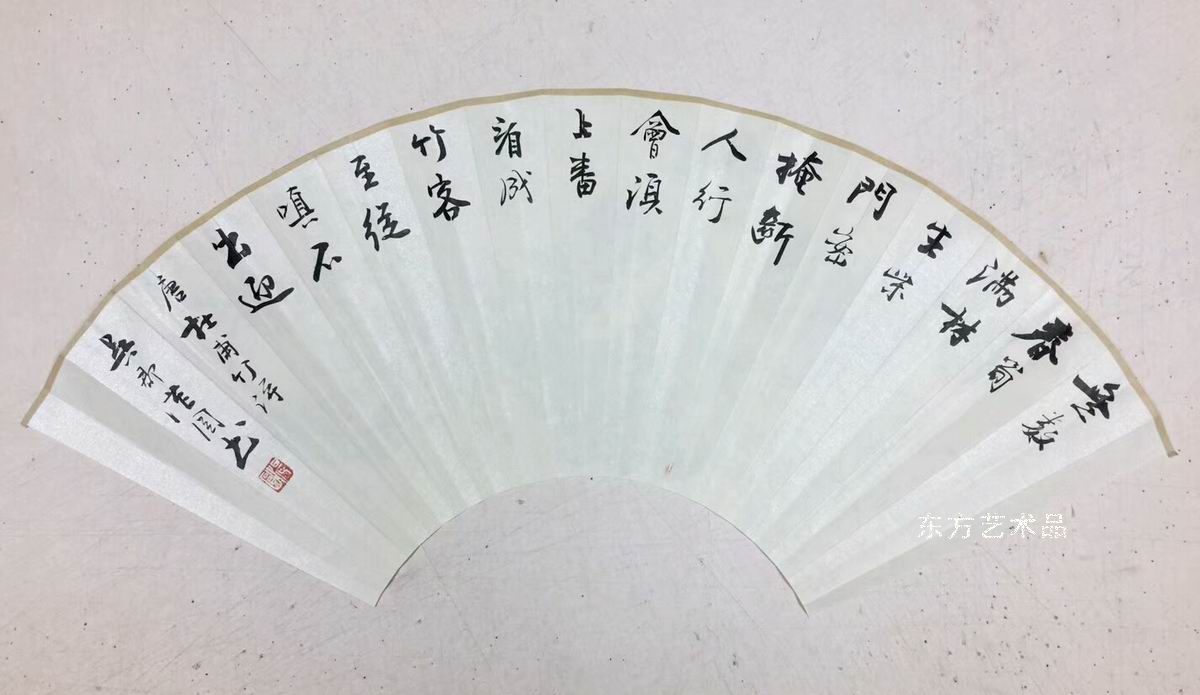 無數
春筍
滿林
生柴
門密
掩斷
人行
會湏
上番
看成
竹客
至從
嗔不
出迎
唐杜甫竹詩
吳郡書
东方艺术品